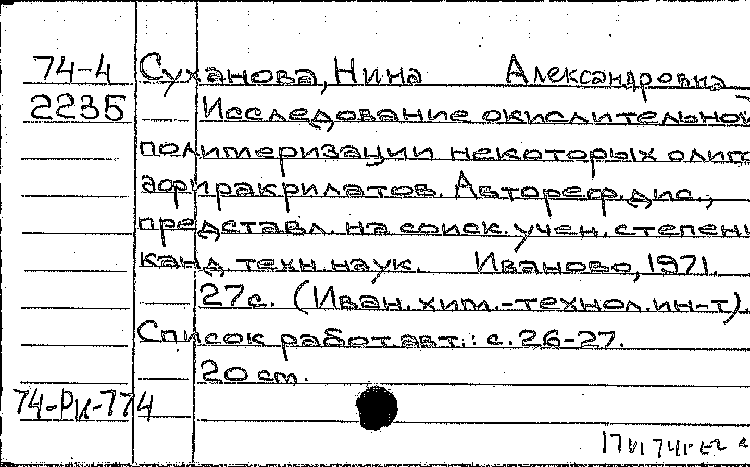 74-4 Суханова, Нина Александровна
2235 Исследование окислительной
полимеризации некоторых олиго
эфиракрилатов. Автореф. дис.,
представл. на соиск. учен. степени
канд. техн. наук. Иваново, 1971.
27с. (Иван. хим.-технол. ин-т).
Список работ авт.: с. 26-27.
20 см.
74-РИ-774